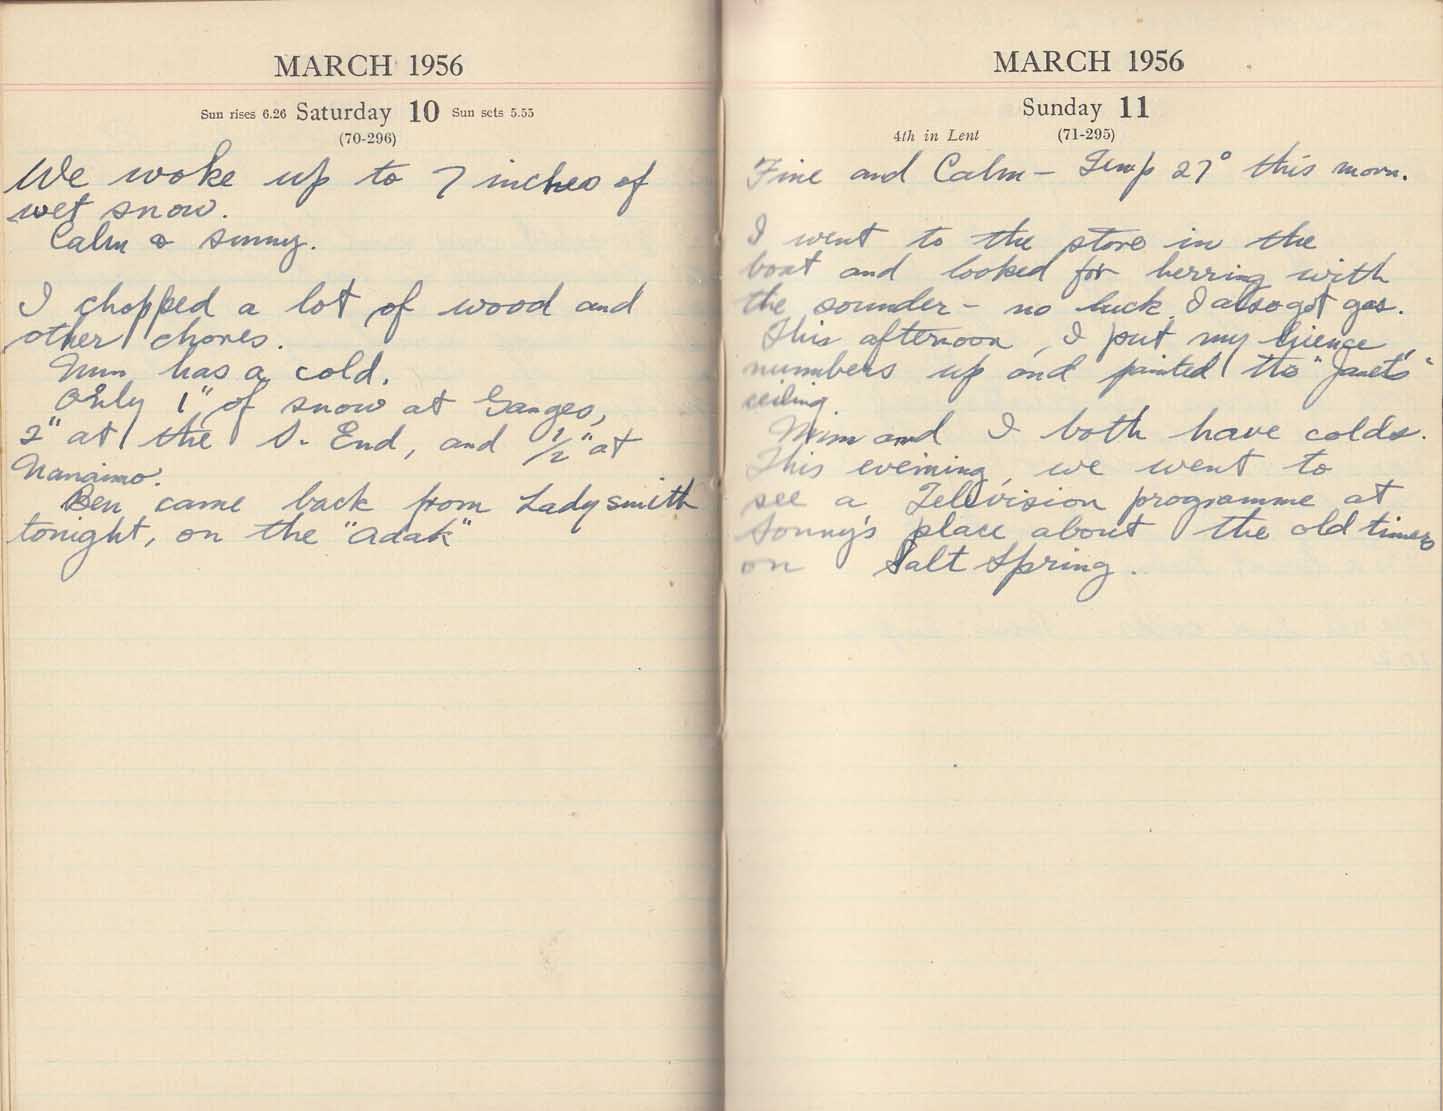 MARCH 1956
Sun rises 6.26 Saturday 10 Sun sets 5.55
(70-296)
We woke up to 7 inches of
wet snow.
Calm & sunny.
I chopped a lot of wood and
other chores.
Mum has a cold.
Only 1" of snow at Ganges,
2" at the S. End, and 1/2" at
Nanaimo.
Ben came back from Ladysmith
tonight, on the "Adak"
MARCH 1956
Sunday 11
4th in Lent (71-295)
Fine and Calm - Temp 27° this morn.
I went to the store in the
boat and looked for herring with
the sounder - no luck. I also got gas.
This afternoon, I put my lisence
numbers up and painted the "Janets"
ceiling.
Mum and I both have colds.
This evening, we went to
see a Television programme at
Sonny's place about the old times
on Salt Spring.